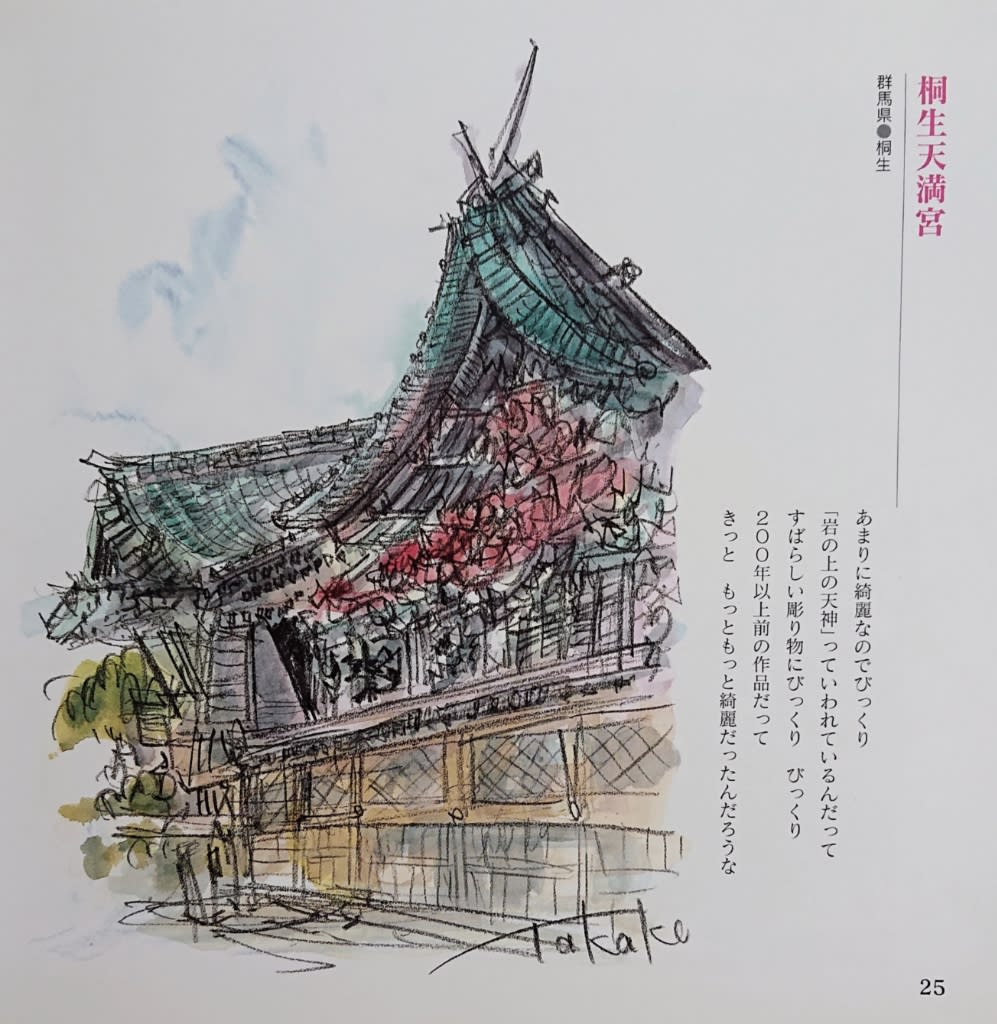 桐生天満宮
群馬県●桐生
あまりに綺麗なのでびっくり
「岩の上の天神」っていわれているんだって
すばらしい彫り物にびっくり　びっくり
２００年以上前の作品だって
きっと　もっともっと綺麗だったんだろうな
Takako
25